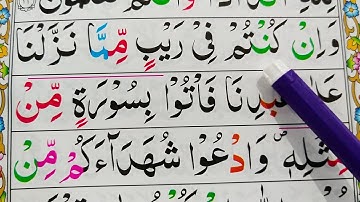 وَاِنْ كُنْتُمْ فِىْ رَيْبٍ مِّمَّا نَزَّلْنَا
عَلٰى عَبْدِنَا فَاْتُوْا بِسُوْرَةٍ مِّنْ
مِّثْلِهٖ ۪ وَادْعُوْا شُهَدَآءَكُمْ مِّنْ